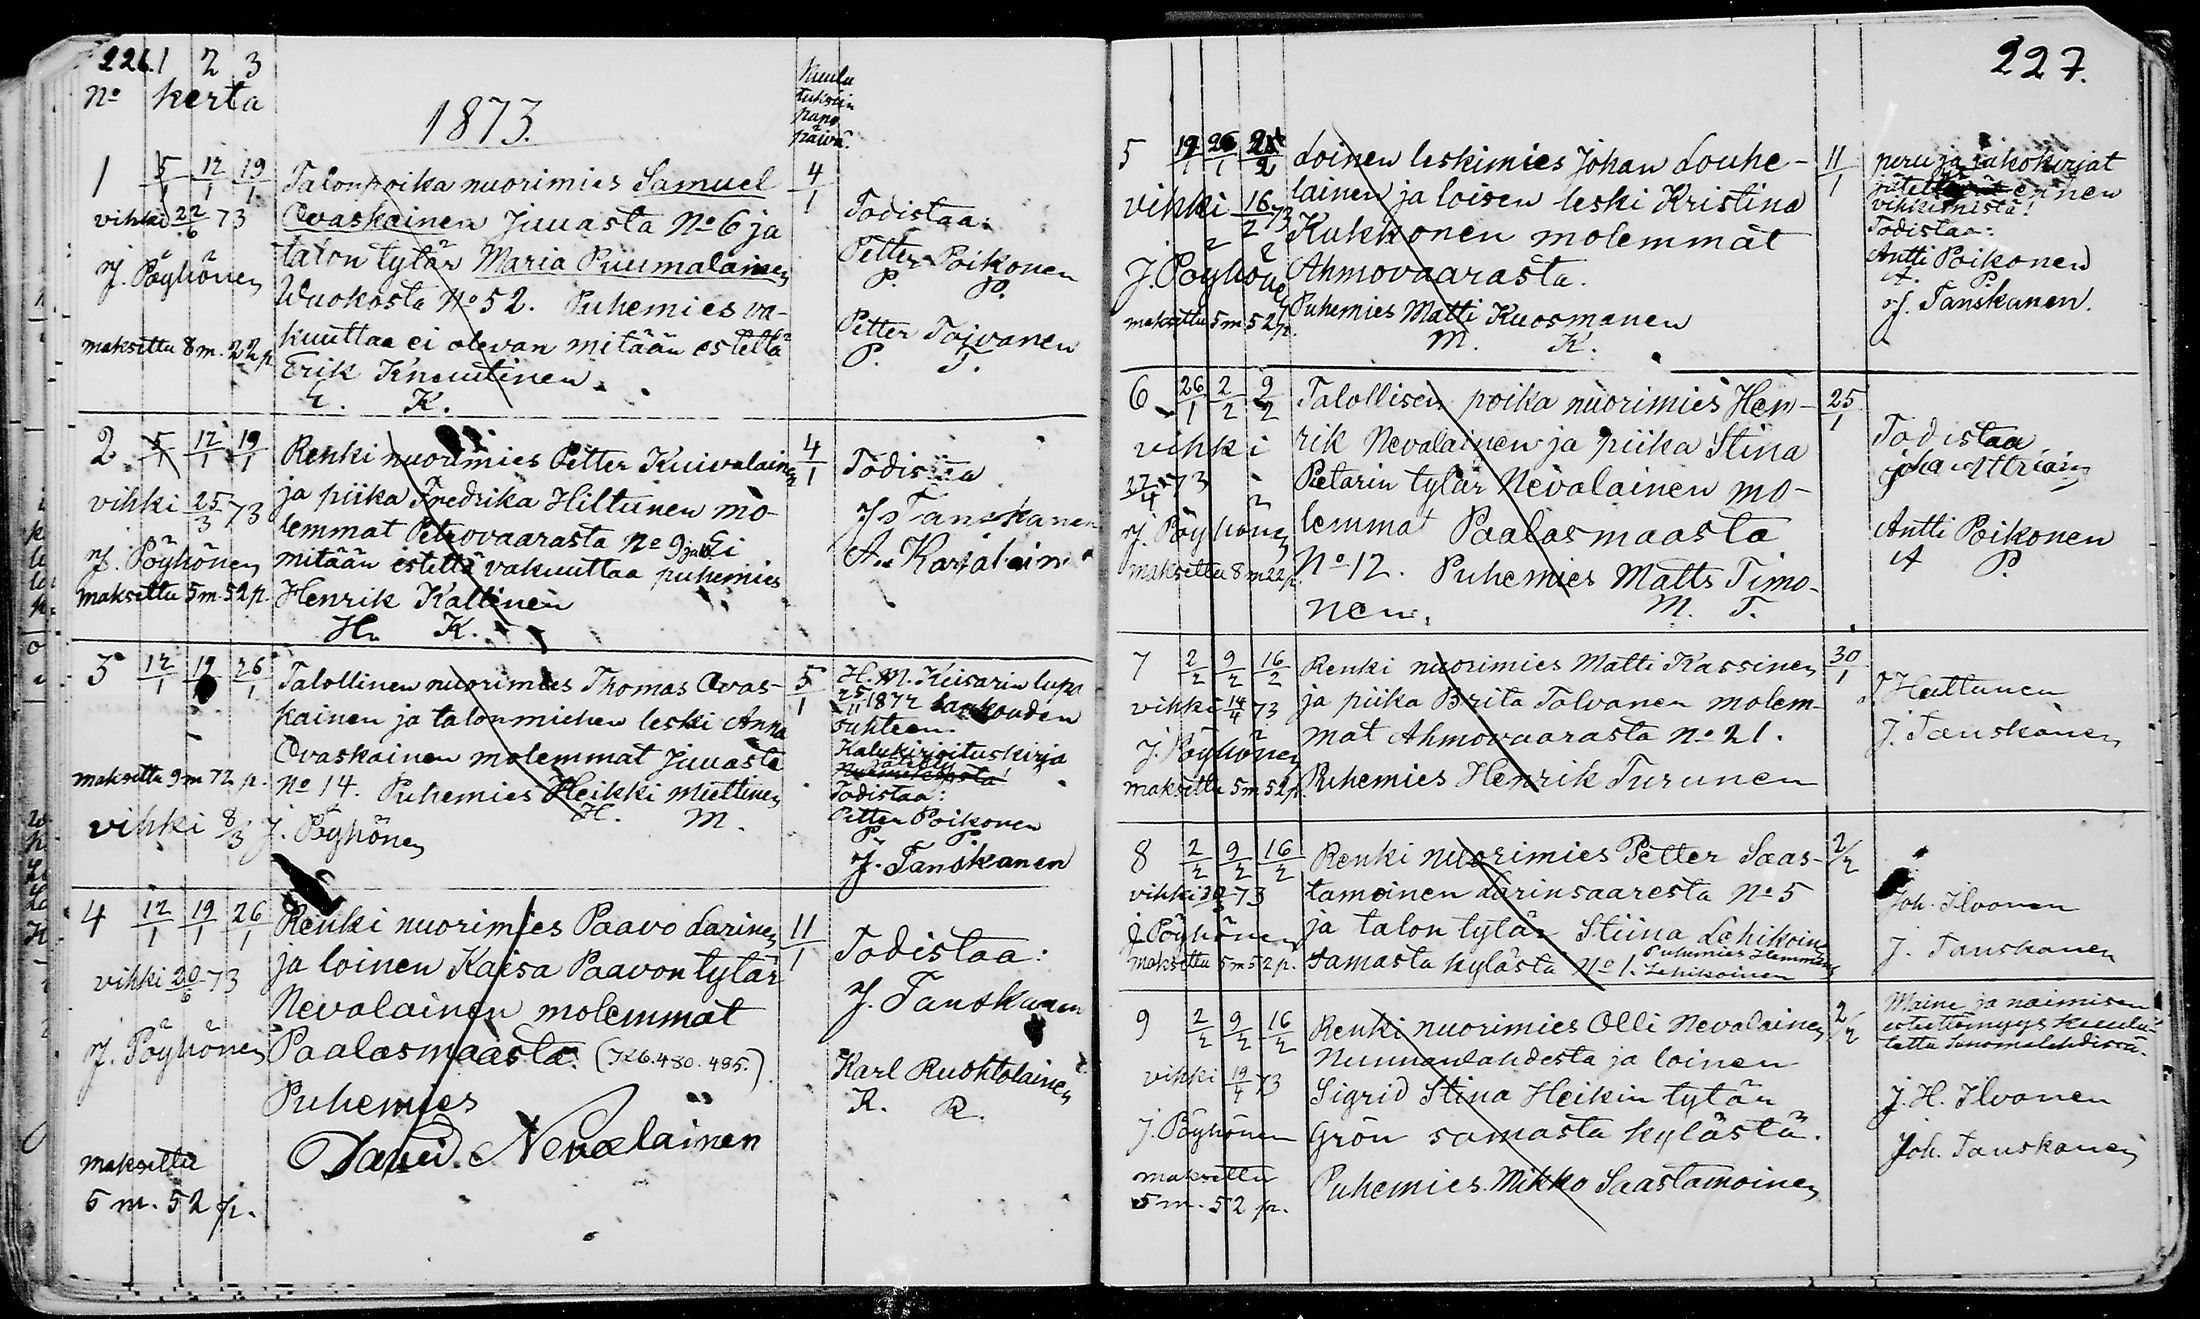 226. 1 2 3
No kerta
1873.
Kuulu
tuksiin
pano
päivä.
1 5/1 12/1 19/1
vihki 22/6 73
J. Pöyhönen
maksettu 8 m. 22 p.
Talonpoika nuorimies Samuel
Ovaskainen Juuasta No 6 ja
talon tytär Maria Puumalainen
Wuokosta No 52. Puhemies va-
kuuttaa ei olevan mitään estettä
Erik Knuutinen
E. K.
4/1
Todistaa:
Petter Poikonen
P. P.
Petter Toivanen
P. T.
2 5/1 12/1 19/1
vihki 25/3 73
J. Pöyhönen
maksettu 5 m. 52 p.
Renki nuorimies Petter Kuivalainen
ja piika Fredrika Hiltunen mo-
lemmat Petrovaarasta No 9 Ei
mitään estettä vakuuttaa puhemies
Henrik Kallinen
H. K.
4/1
Todistaa
J. Tanskanen
A. Karjalain
3 12/1 19/1 26/1
maksettu 9 m 72 p.
vihki 8/3 J. Pöyhönen
Talollinen nuorimies Thomas Ovas-
kainen ja talonmiehen leski Anna
Ovaskainen molemmat Juuasta
No 14. Puhemies Heikki Miettinen
H. M.
5/1
H. M. Keisarin lupa
25/11 1872 lankouden
suhteen.
Kalukirjoituskirja
Todistaa:
Petter Poikonen
P. P.
J. Tanskanen
4 12/1 19/1 26/1
vihki 20/6 73
J. Pöyhönen
maksettu
5 m. 52 p.
Renki nuorimies Paavo Larinen
ja loinen Kaisa Paavon tytär
Nevalainen molemmat
Paalasmaasta. (726.480.485.)
Puhemies
David Nevalainen
11/1
Todistaa:
J. Tanskanen
Karl Ruohtolainen
K. R.
227.
5 19/1 26/1 2/2
vihki 16/2 73
J. Pöyhönen
maksettu 5 m 52 p.
Loinen leskimies Johan Louhe-
lainen ja loisen leski Kristina
Kukkonen molemmat
Ahmovaarasta.
Puhemies Matti Kuosmanen
M. K.
11/1
peru ja jakokirjat
ennen
vihkimistä!
Todistaa:
Antti Poikonen
A. P.
J. Tanskanen.
6 26/1 2/2 9/2
vihki
27/4 73
J. Pöyhönen
maksettu 8 m 22 p.
Talollisen poika nuorimies Hen-
rik Nevalainen ja piika Stina
Pietarin tytär Nevalainen mo-
lemmat Paalasmaasta
No 12. Puhemies Matts Timo-
nen. M. T.
25/1
Todistaa
Antti Poikonen
A P.
7 2/2 9/2 16/2
vihki 14/4 73
J. Pöyhönen
maksettu 5 m 52 p.
Renki nuorimies Matti Kassinen
ja piika Brita Tolvanen molem-
mat Ahmovaarasta No 21.
Puhemies Henrik Turunen
30/1
J. Tanskanen
8 2/2 9/2 16/2
vihki 73
J. Pöyhönen
maksettu 5 m 52 p.
Renki nuorimies Petter Saas-
tamoinen Larinsaaresta No 5
ja talon tytär Stiina Lehikoinen
samasta kylästä No 1. Puhemies Hemming
Lehikoinen
2/2
Joh. Ilvonen
J. Tanskanen
9 2/2 9/2 16/2
vihki 19/4 73
J. Pöyhönen
maksettu
5 m. 52 p.
Renki nuorimies Olli Nevalainen
Nunnanlahdesta ja loinen
Sigrid Stina Heikin tytär
Grön samasta kylästä.
Puhemies Mikko Saastamoinen
2/2
Maine ja naimisen
esteettömyys kuulu-
tettu Sanomalehdissä.
J. H. Ilvonen
Joh. Tanskanen